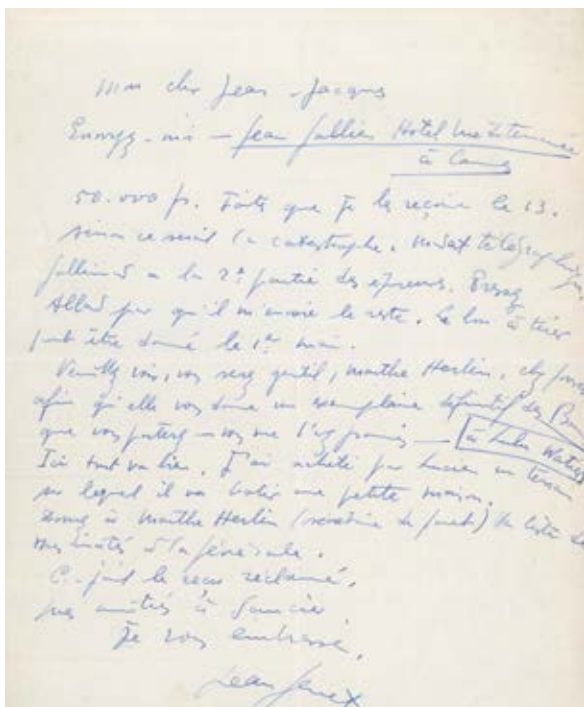 Mon cher Jean-Jacques
Envoyez-moi — Jean Gallien Hotel Méditerranée
à Cannes
50.000 fr. Faites que je les reçoive le 13.
sinon ce serait la catastrophe.
Gallimard a la 2e partie des épreuves. Pressez
Allard pour qu'il m'envoie le reste. Le bon à tirer
peut être donné le 1er mai.
Veuillez voir, vous serez gentil, Marthe Herlin, chez
afin qu'elle vous donne un exemplaire définitif des
que vous porterez — vous me l'avez promis — à
Ici tout va bien. J'ai acheté pour Lucien un terrain
sur lequel il va bâtir une petite maison.
Donnez à Marthe Herlin (secrétaire de Jouvet) la liste de
mes invités à la générale.
C-joint le reçu réclamé.
mes amitiés à
Je vous embrasse.
Jean Genet